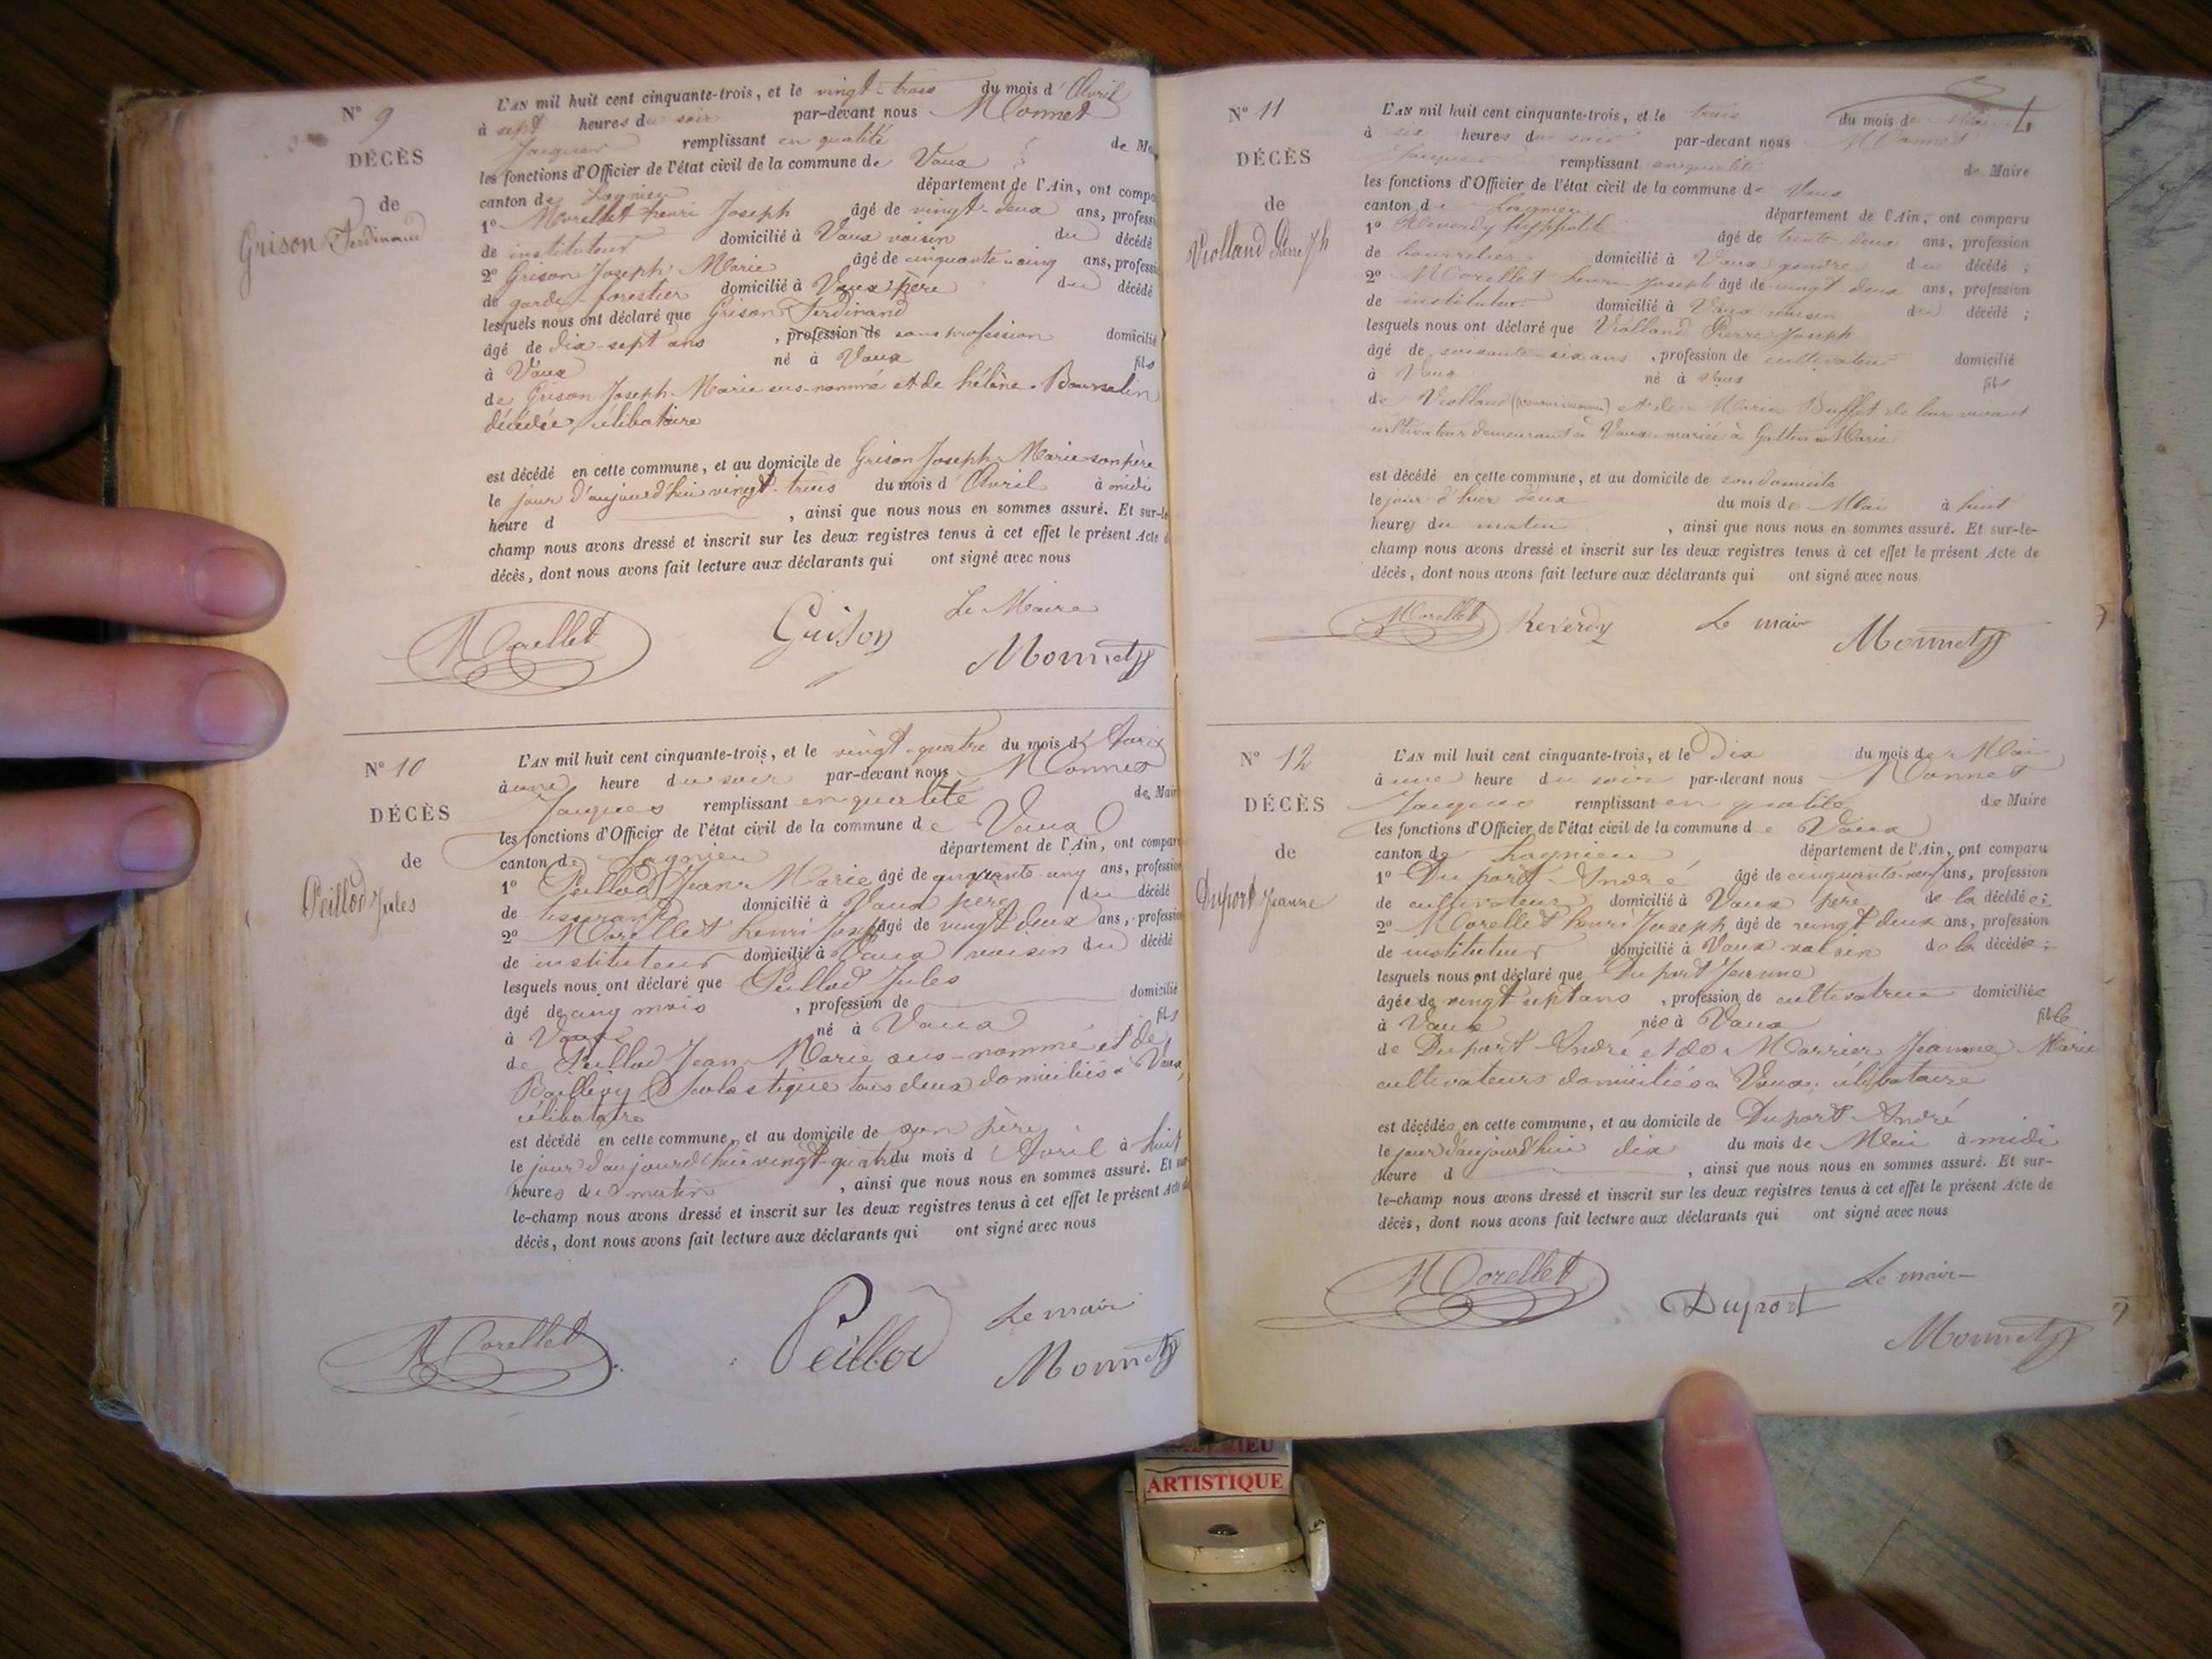 N° 9
DÉCÈS
de
Grison Ferdinand
L'AN mil huit cent cinquante-trois, et le vingt-trois du mois d'Avril
à sept heures du soir par-devant nous Monnet
Jacques remplissant en qualité de
les fonctions d'Officier de l'état civil de la commune de Vaux
canton de Lagnieu département de l'Ain, ont compa
1° Morellet henri Joseph âgé de vingt-deux ans, profess
de instituteur domicilié à Vaux voisin du décédé
2° Grison Joseph Marie âgé de cinquante-cinq ans, profess
de garde-forestier domicilié à Vaux père du décédé
lesquels nous ont déclaré que Grison Ferdinand
âgé de dix-sept ans, profession de sans profession domicilié
à Vaux né à Vaux fils
de Grison Joseph Marie sus-nommé et de hélène
décédée, célibataire
est décédé en cette commune, et au domicile de Grison Joseph Marie son père
le jour d'aujourd'hui vingt-trois du mois d'Avril à midi
heure d , ainsi que nous nous en sommes assuré. Et sur-le
champ nous avons dressé et inscrit sur les deux registres tenus à cet effet le présent Acte d
décès, dont nous avons fait lecture aux déclarants qui ont signé avec nous
Le Maire
Morellet Grison Monnet
N° 10
DÉCÈS
de
Peillod Jules
L'AN mil huit cent cinquante-trois, et le vingt-quatre du mois d'Avril
à une heure du soir par-devant nous Monnet
Jacques remplissant en qualité de Mair
les fonctions d'Officier de l'état civil de la commune de Vaux
canton de Lagnieu département de l'Ain, ont compar
1° Peillod Jean Marie âgé de ans, profession
de tisserand domicilié à Vaux père du décédé
2° Morellet henri Joseph âgé de vingt deux ans, profession
de instituteur domicilié à Vaux voisin du décédé
lesquels nous ont déclaré que Peillod Jules
âgé de cinq mois, profession de domicilié
à Vaux né à Vaux fils
de Peillod Jean Marie sus-nommé et de
Scholastique tous deux domiciliés à Vaux,
célibataire
est décédé en cette commune, et au domicile de son père
le jour d'aujourd'hui vingt-quatre du mois d'Avril à huit
heures du matin, ainsi que nous nous en sommes assuré. Et sur
le-champ nous avons dressé et inscrit sur les deux registres tenus à cet effet le présent Acte de
décès, dont nous avons fait lecture aux déclarants qui ont signé avec nous
Le maire
Morellet Peillod Monnet
N° 11
DÉCÈS
de
Violland Pierre Jh
L'AN mil huit cent cinquante-trois, et le trois du mois de Mai
à six heures du soir par-devant nous Monnet
Jacques remplissant en qualité de Maire
les fonctions d'Officier de l'état civil de la commune de Vaux
canton de Lagnieu département de l'Ain, ont comparu
1° Reverdy hyppolite âgé de trente deux ans, profession
de bourrelier domicilié à Vaux gendre du décédé ;
2° Morellet henri Joseph âgé de vingt deux ans, profession
de instituteur domicilié à Vaux voisin du décédé ;
lesquels nous ont déclaré que Violland Pierre Joseph
âgé de soixante-six ans, profession de cultivateur domicilié
à Vaux né à Vaux fils
de Violland et de Marie Buffet de leur vivant
cultivateurs demeurant à Vaux, marié à Marie
est décédé en cette commune, et au domicile de son domicile
le jour d'hier deux du mois de Mai à huit
heures du matin, ainsi que nous nous en sommes assuré. Et sur-le-
champ nous avons dressé et inscrit sur les deux registres tenus à cet effet le présent Acte de
décès, dont nous avons fait lecture aux déclarants qui ont signé avec nous
Morellet Reverdy Le maire Monnet
N° 12
DÉCÈS
de
Duport Jeanne
L'AN mil huit cent cinquante-trois, et le Dix du mois de Mai
à une heure du soir par-devant nous Monnet
Jacques remplissant en qualité de Maire
les fonctions d'Officier de l'état civil de la commune de Vaux
canton de Lagnieu département de l'Ain, ont comparu
1° Duport André âgé de ans, profession
de cultivateur domicilié à Vaux père de la décédée ;
2° Morellet henri Joseph âgé de vingt deux ans, profession
de instituteur domicilié à Vaux voisin de la décédée ;
lesquels nous ont déclaré que Duport Jeanne
âgée de vingt sept ans, profession de cultivatrice domiciliée
à Vaux née à Vaux fille
de Duport André et de Marrier Jeanne Marie
cultivateurs domiciliés à Vaux, célibataire
est décédée en cette commune, et au domicile de Duport André
le jour d'aujourd'hui dix du mois de Mai à midi
heure d , ainsi que nous nous en sommes assuré. Et sur-
le-champ nous avons dressé et inscrit sur les deux registres tenus à cet effet le présent Acte de
décès, dont nous avons fait lecture aux déclarants qui ont signé avec nous
Morellet Duport Le maire
Monnet
ARTISTIQUE